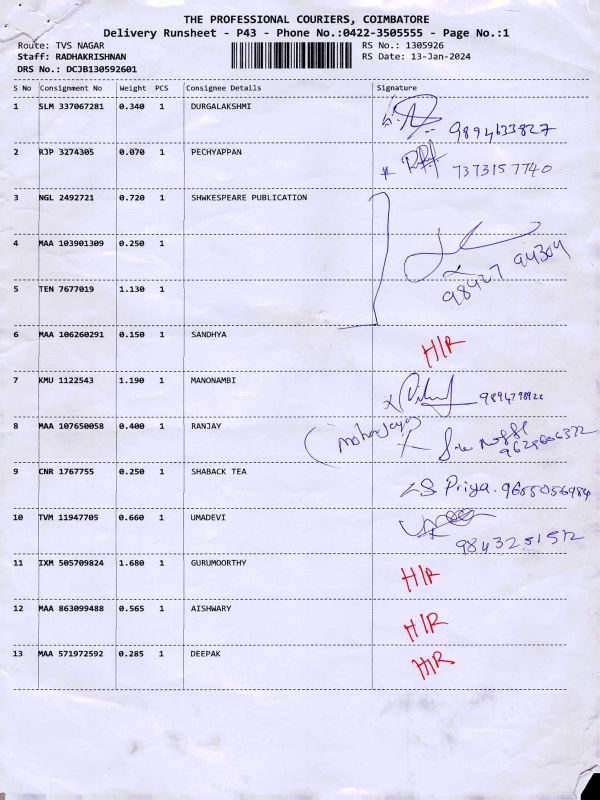 THE PROFESSIONAL COURIERS, COIMBATORE
Delivery Runsheet - P43 - Phone No.:0422-3505555 - Page No.:1
Route: TVS NAGAR RS No.: 1305926
Staff: RADHAKRISHNAN RS Date: 13-Jan-2024
DRS No.: DCJB130592601
S No Consignment No Weight PCS Consignee Details Signature
1 SLM 337067281 0.340 1 DURGALAKSHMI
9894633827
2 RJP 3274305 0.070 1 PECHYAPPAN
7373157740
3 NGL 2492721 0.720 1 SHWKESPEARE PUBLICATION
4 MAA 103901309 0.250 1
98427 94304
5 TEN 7677019 1.130 1
6 MAA 106260291 0.150 1 SANDHYA
H/R
7 KMU 1122543 1.190 1 MANONAMBI
8 MAA 107650058 0.400 1 RANJAY
9 CNR 1767755 0.250 1 SHABACK TEA
Priya. 9655056984
10 TVM 11947705 0.660 1 UMADEVI
9843251512
11 IXM 505709824 1.680 1 GURUMOORTHY
H/R
12 MAA 863099488 0.565 1 AISHWARY
H/R
13 MAA 571972592 0.285 1 DEEPAK
H/R